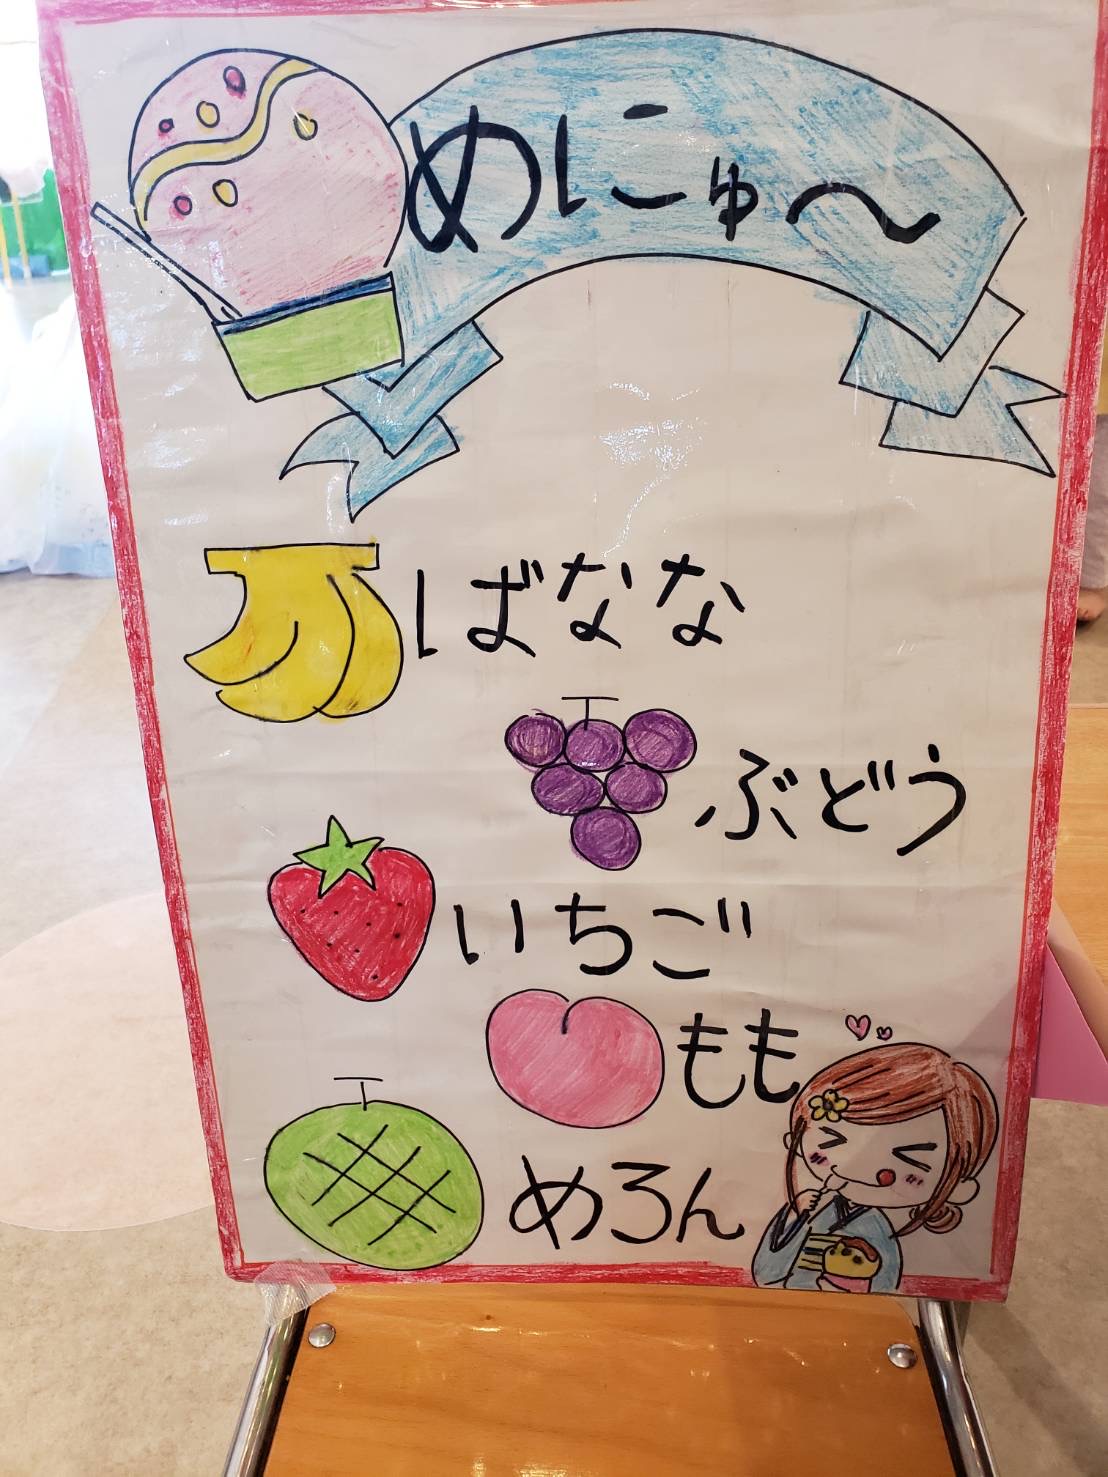 めにゅ〜
ばなな
ぶどう
いちご
もも
めろん